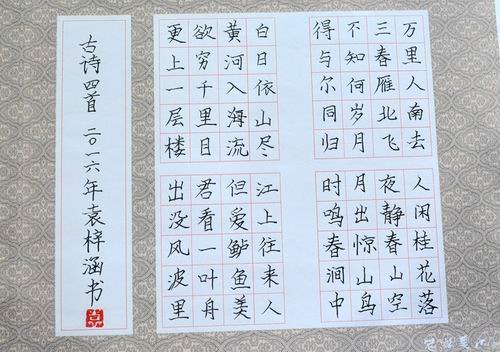 万里人南去
三春雁北飞
不知何岁月
得与尔同归
人闲桂花落
夜静春山空
月出惊山鸟
时鸣春涧中
白日依山尽
黄河入海流
欲穷千里目
更上一层楼
江上往来人
但爱鲈鱼美
君看一叶舟
出没风波里
古诗四首 二〇一六年袁梓涵书